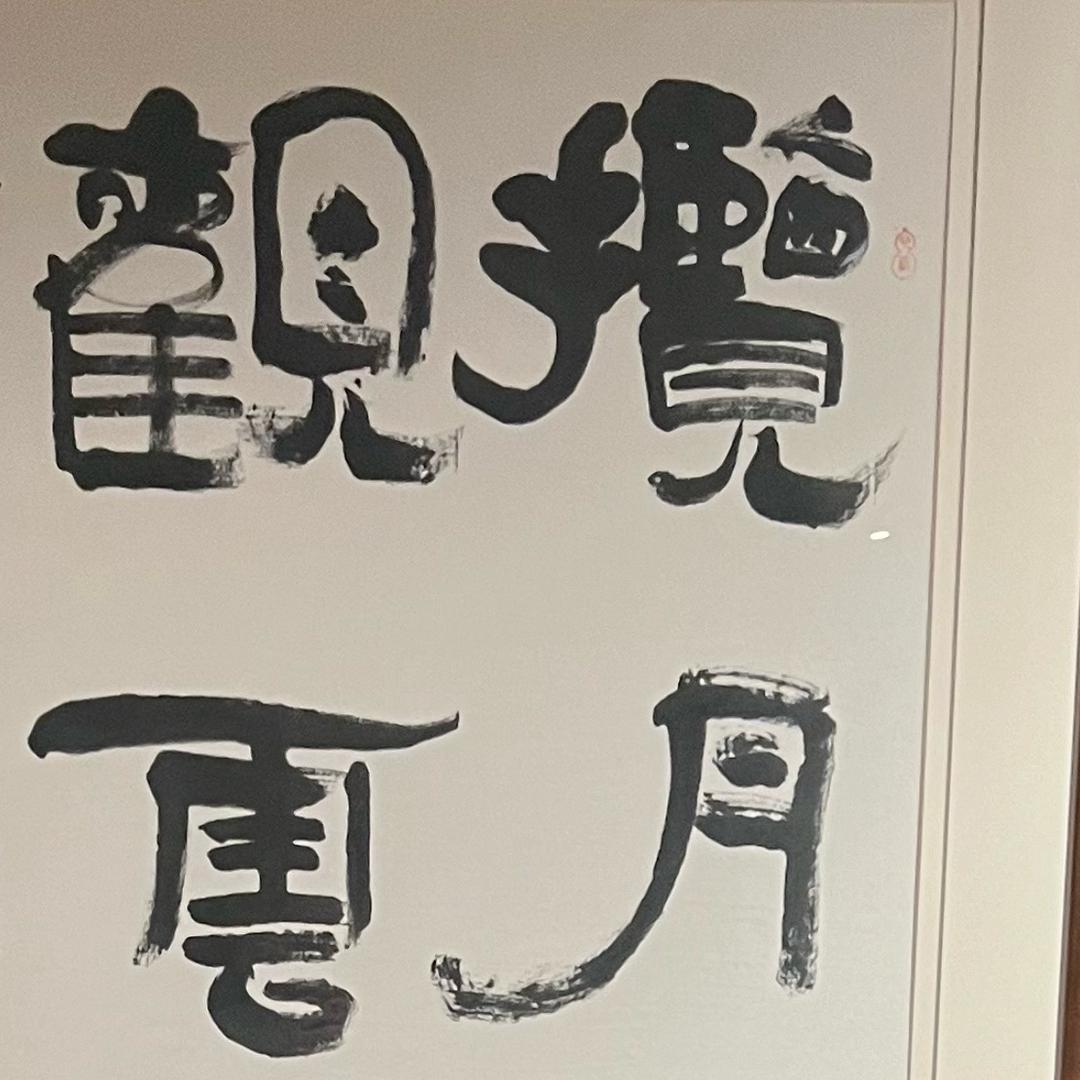 攬月
觀雲